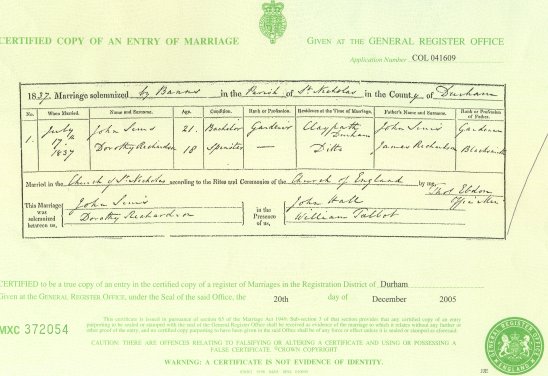 CERTIFIED COPY OF AN ENTRY OF MARRIAGE
GIVEN AT THE GENERAL REGISTER OFFICE
Application Number COL 041609
1837. Marriage solemnized by Banns in the Parish of St Nicholas in the County of Durham
No. When Married. Name and Surname. Age. Condition. Rank or Profession. Residence at the Time of Marriage. Father's Name and Surname. Rank or Profession of Father.
1. July 17th 1837 John Sims 21. Bachelor Gardener Claypath Durham John Sims Gardener
Dorothy Richardson 18 Spinster — Ditto James Richardson Blacksmith
Married in the Church of St Nicholas according to the Rites and Ceremonies of the Church of England by me, Thos Ebdon
This Marriage was solemnized between us,
John Sims
Dorothy Richardson
in the Presence of us,
John Hall
William Talbot
CERTIFIED to be a true copy of an entry in the certified copy of a register of Marriages in the Registration District of Durham
Given at the GENERAL REGISTER OFFICE, under the Seal of the said Office, the 20th day of December 2005
MXC 372054
This certificate is issued in pursuance of section 65 of the Marriage Act 1949. Sub-section 3 of that section provides that any certified copy of an entry
purporting to be sealed or stamped with the seal of the General Register Office shall be received as evidence of the marriage to which it relates without any further or
other proof of the entry, and no certified copy purporting to have been given in the said Office shall be of any force or effect unless it is sealed or stamped as aforesaid.
CAUTION: THERE ARE OFFENCES RELATING TO FALSIFYING OR ALTERING A CERTIFICATE AND USING OR POSSESSING A
FALSE CERTIFICATE. ©CROWN COPYRIGHT
WARNING: A CERTIFICATE IS NOT EVIDENCE OF IDENTITY.
GENERAL REGISTER OFFICE
ENGLAND